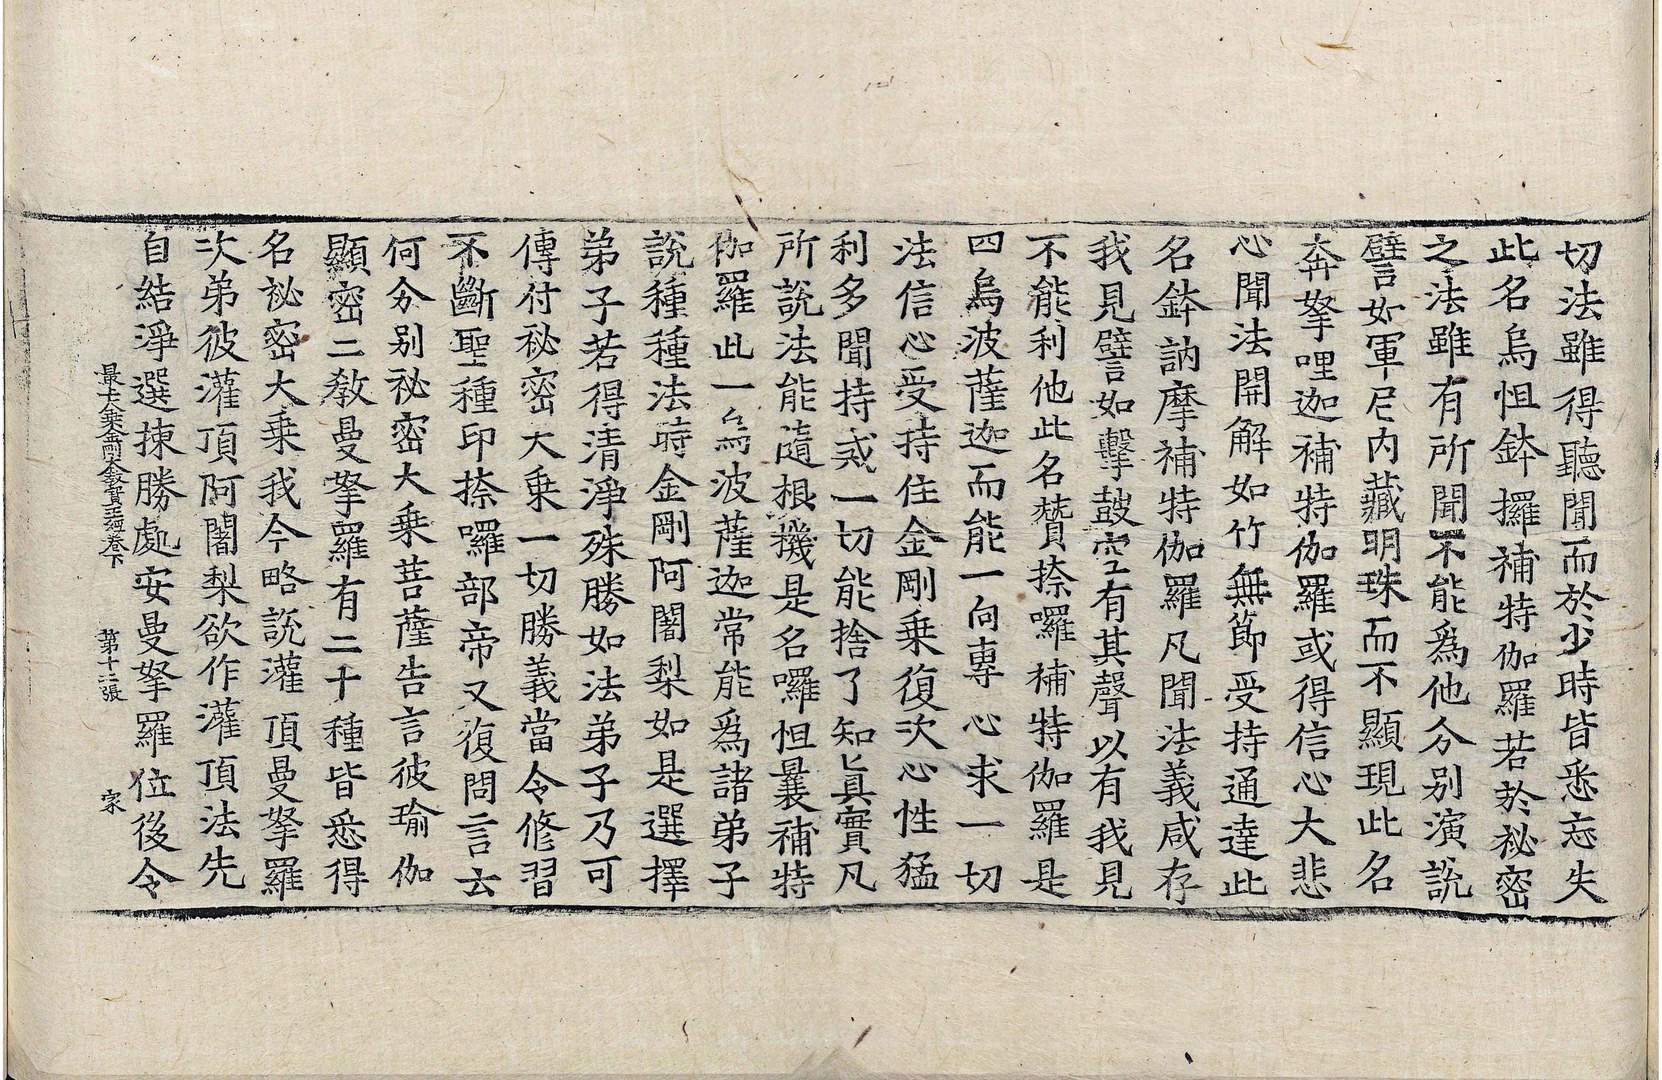 切法雖得聽聞而於少時皆悉忘失
此名烏怛鉢攞補特伽羅若於秘密
之法雖有所聞不能為他分別演說
譬如軍尼內藏明珠而不顯現此名
奔拏哩迦補特伽羅或得信心大悲
心聞法開解如竹無節受持通達此
名鉢訥摩補特伽羅凡聞法義咸存
我見譬如擊鼓空有其聲以有我見
不能利他此名贊捺囉補特伽羅是
四烏波薩迦而能一向專心求一切
法信心受持住金剛乘復次心性猛
利多聞持惑一切能捨了知眞實凡
所說法能隨根機是名囉怛曩補特
伽羅此一烏波薩迦常能為諸弟子
說種種法時金剛阿闍梨如是選擇
弟子若得清淨殊勝如法弟子乃可
傳付秘密大乘一切勝義當令修習
不斷聖種印捺囉部帝又復問言云
何分別祕密大乘菩薩告言彼瑜伽
顯密二教曼拏羅有二十種皆悉得
名祕密大乘我今略說灌頂曼拏羅
次弟彼灌頂阿闍梨欲作灌頂法先
自結淨選揀勝處安曼拏羅位後令
最上大乘金剛大教寶王經卷下 第十二張 家